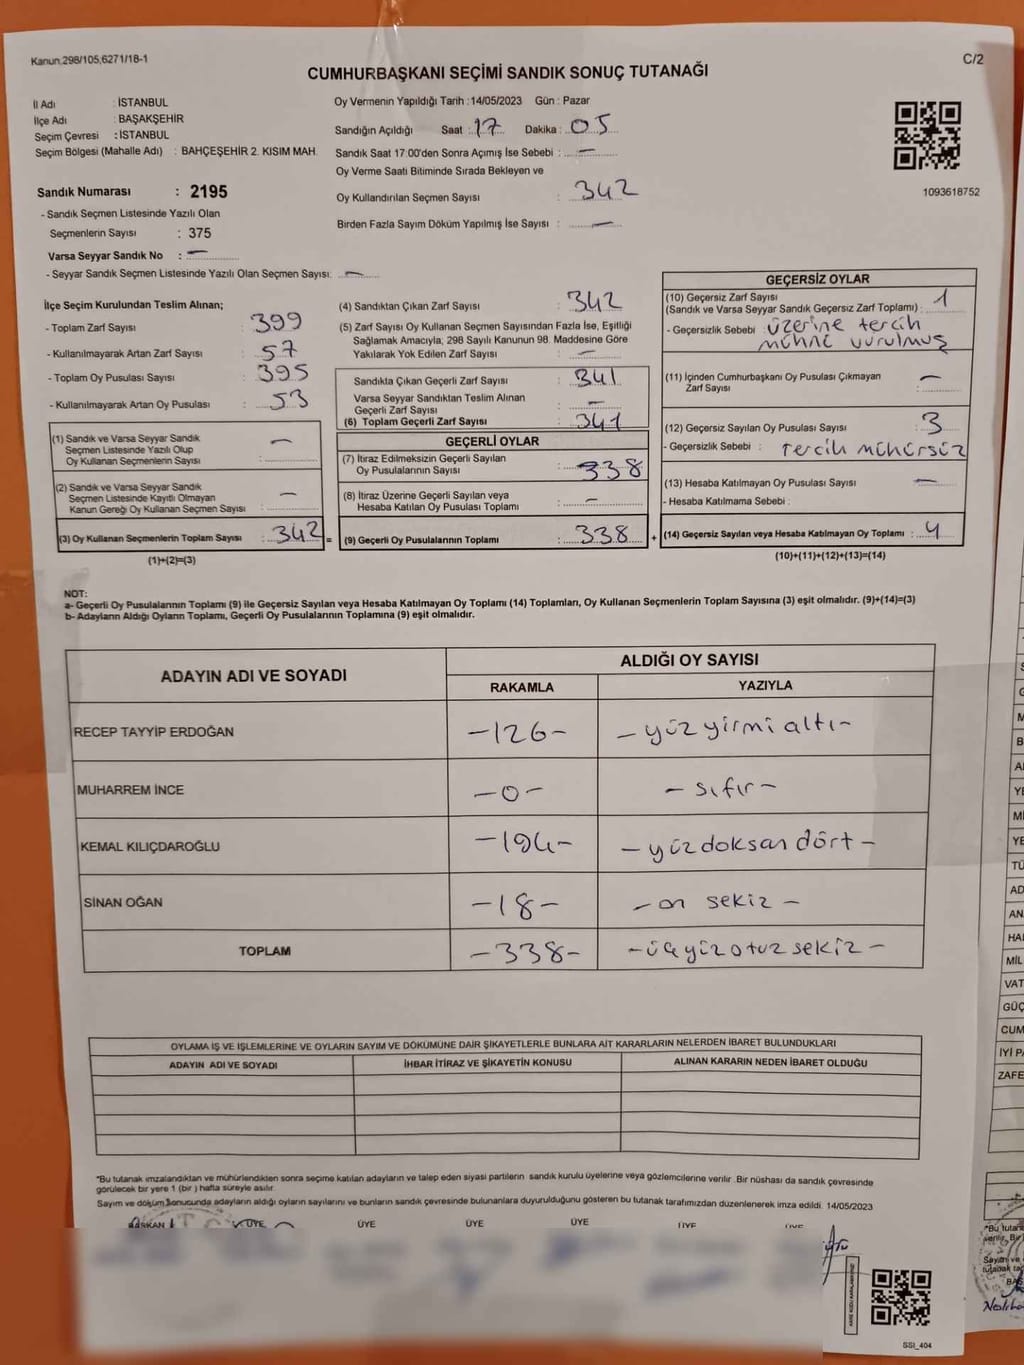 Kanun.298/105,6271/18-1
C/2
CUMHURBAŞKANI SEÇİMİ SANDIK SONUÇ TUTANAĞI
İl Adı : İSTANBUL
İlçe Adı : BAŞAKŞEHİR
Seçim Çevresi : İSTANBUL
Seçim Bölgesi (Mahalle Adı) : BAHÇEŞEHİR 2. KISIM MAH.
Oy Vermenin Yapıldığı Tarih :14/05/2023 Gün : Pazar
Sandığın Açıldığı Saat : 17 Dakika : 05
Sandık Saat 17:00'den Sonra Açımış İse Sebebi : —
Oy Verme Saati Bitiminde Sırada Bekleyen ve
Oy Kullandırılan Seçmen Sayısı : 342
Birden Fazla Sayım Döküm Yapılmış İse Sayısı : —
1093618752
Sandık Numarası : 2195
- Sandık Seçmen Listesinde Yazılı Olan
Seçmenlerin Sayısı : 375
Varsa Seyyar Sandık No : —
- Seyyar Sandık Seçmen Listesinde Yazılı Olan Seçmen Sayısı: —
İlçe Seçim Kurulundan Teslim Alınan;
- Toplam Zarf Sayısı : 399
- Kullanılmayarak Artan Zarf Sayısı : 57
- Toplam Oy Pusulası Sayısı : 395
- Kullanılmayarak Artan Oy Pusulası : 53
(1) Sandık ve Varsa Seyyar Sandık
Seçmen Listesinde Yazılı Olup
Oy Kullanan Seçmenlerin Sayısı : —
(2) Sandık ve Varsa Seyyar Sandık
Seçmen Listesinde Kayıtlı Olmayan
Kanun Gereği Oy Kullanan Seçmen Sayısı : —
(3) Oy Kullanan Seçmenlerin Toplam Sayısı : 342 =
(1)+(2)=(3)
(4) Sandıktan Çıkan Zarf Sayısı : 342
(5) Zarf Sayısı Oy Kullanan Seçmen Sayısından Fazla İse, Eşitliği
Sağlamak Amacıyla; 298 Sayılı Kanunun 98. Maddesine Göre
Yakılarak Yok Edilen Zarf Sayısı : —
Sandıkta Çıkan Geçerli Zarf Sayısı : 341
Varsa Seyyar Sandıktan Teslim Alınan
Geçerli Zarf Sayısı : —
(6) Toplam Geçerli Zarf Sayısı : 341
GEÇERLİ OYLAR
(7) İtiraz Edilmeksizin Geçerli Sayılan
Oy Pusulalarının Sayısı : 338
(8) İtiraz Üzerine Geçerli Sayılan veya
Hesaba Katılan Oy Pusulası Toplamı : —
(9) Geçerli Oy Pusulalarının Toplamı : 338 +
GEÇERSİZ OYLAR
(10) Geçersiz Zarf Sayısı
(Sandık ve Varsa Seyyar Sandık Geçersiz Zarf Toplamı) : 1
- Geçersizlik Sebebi : üzerine tercih
mührü vurulmuş
(11) İçinden Cumhurbaşkanı Oy Pusulası Çıkmayan
Zarf Sayısı : —
(12) Geçersiz Sayılan Oy Pusulası Sayısı : 3
- Geçersizlik Sebebi : Tercih mühürsüz
(13) Hesaba Katılmayan Oy Pusulası Sayısı : —
- Hesaba Katılmama Sebebi :
(14) Geçersiz Sayılan veya Hesaba Katılmayan Oy Toplamı : 4
(10)+(11)+(12)+(13)=(14)
NOT:
a- Geçerli Oy Pusulalarının Toplamı (9) ile Geçersiz Sayılan veya Hesaba Katılmayan Oy Toplamı (14) Toplamları, Oy Kullanan Seçmenlerin Toplam Sayısına (3) eşit olmalıdır. (9)+(14)=(3)
b- Adayların Aldığı Oyların Toplamı, Geçerli Oy Pusulalarının Toplamına (9) eşit olmalıdır.
ADAYIN ADI VE SOYADI
ALDIĞI OY SAYISI
RAKAMLA YAZIYLA
RECEP TAYYİP ERDOĞAN -126- - yüz yirmi altı -
MUHARREM İNCE -0- - sıfır -
KEMAL KILIÇDAROĞLU -194- - yüz doksan dört -
SİNAN OĞAN -18- - on sekiz -
TOPLAM -338- - üçyüz otuz sekiz -
OYLAMA İŞ VE İŞLEMLERİNE VE OYLARIN SAYIM VE DÖKÜMÜNE DAİR ŞİKAYETLERLE BUNLARA AİT KARARLARIN NELERDEN İBARET BULUNDUKLARI
ADAYIN ADI VE SOYADI İHBAR İTİRAZ VE ŞİKAYETİN KONUSU ALINAN KARARIN NEDEN İBARET OLDUĞU
*Bu tutanak imzalandıktan ve mühürlendikten sonra seçime katılan adayların ve talep eden siyasi partilerin sandık kurulu üyelerine veya gözlemcilerine verilir .Bir nüshası da sandık çevresinde
görülecek bir yere 1 (bir ) hafta süreyle asılır.
Sayım ve döküm sonucunda adayların aldığı oyların sayılarını ve bunların sandık çevresinde bulunanlara duyurulduğunu gösteren bu tutanak tarafımızdan düzenlenerek imza edildi. 14/05/2023
BAŞKAN ÜYE ÜYE ÜYE ÜYE ÜYE ÜYE
SSI_404
CUM
İYİ PA
ZAFE
VAT
GÜÇ
MİL